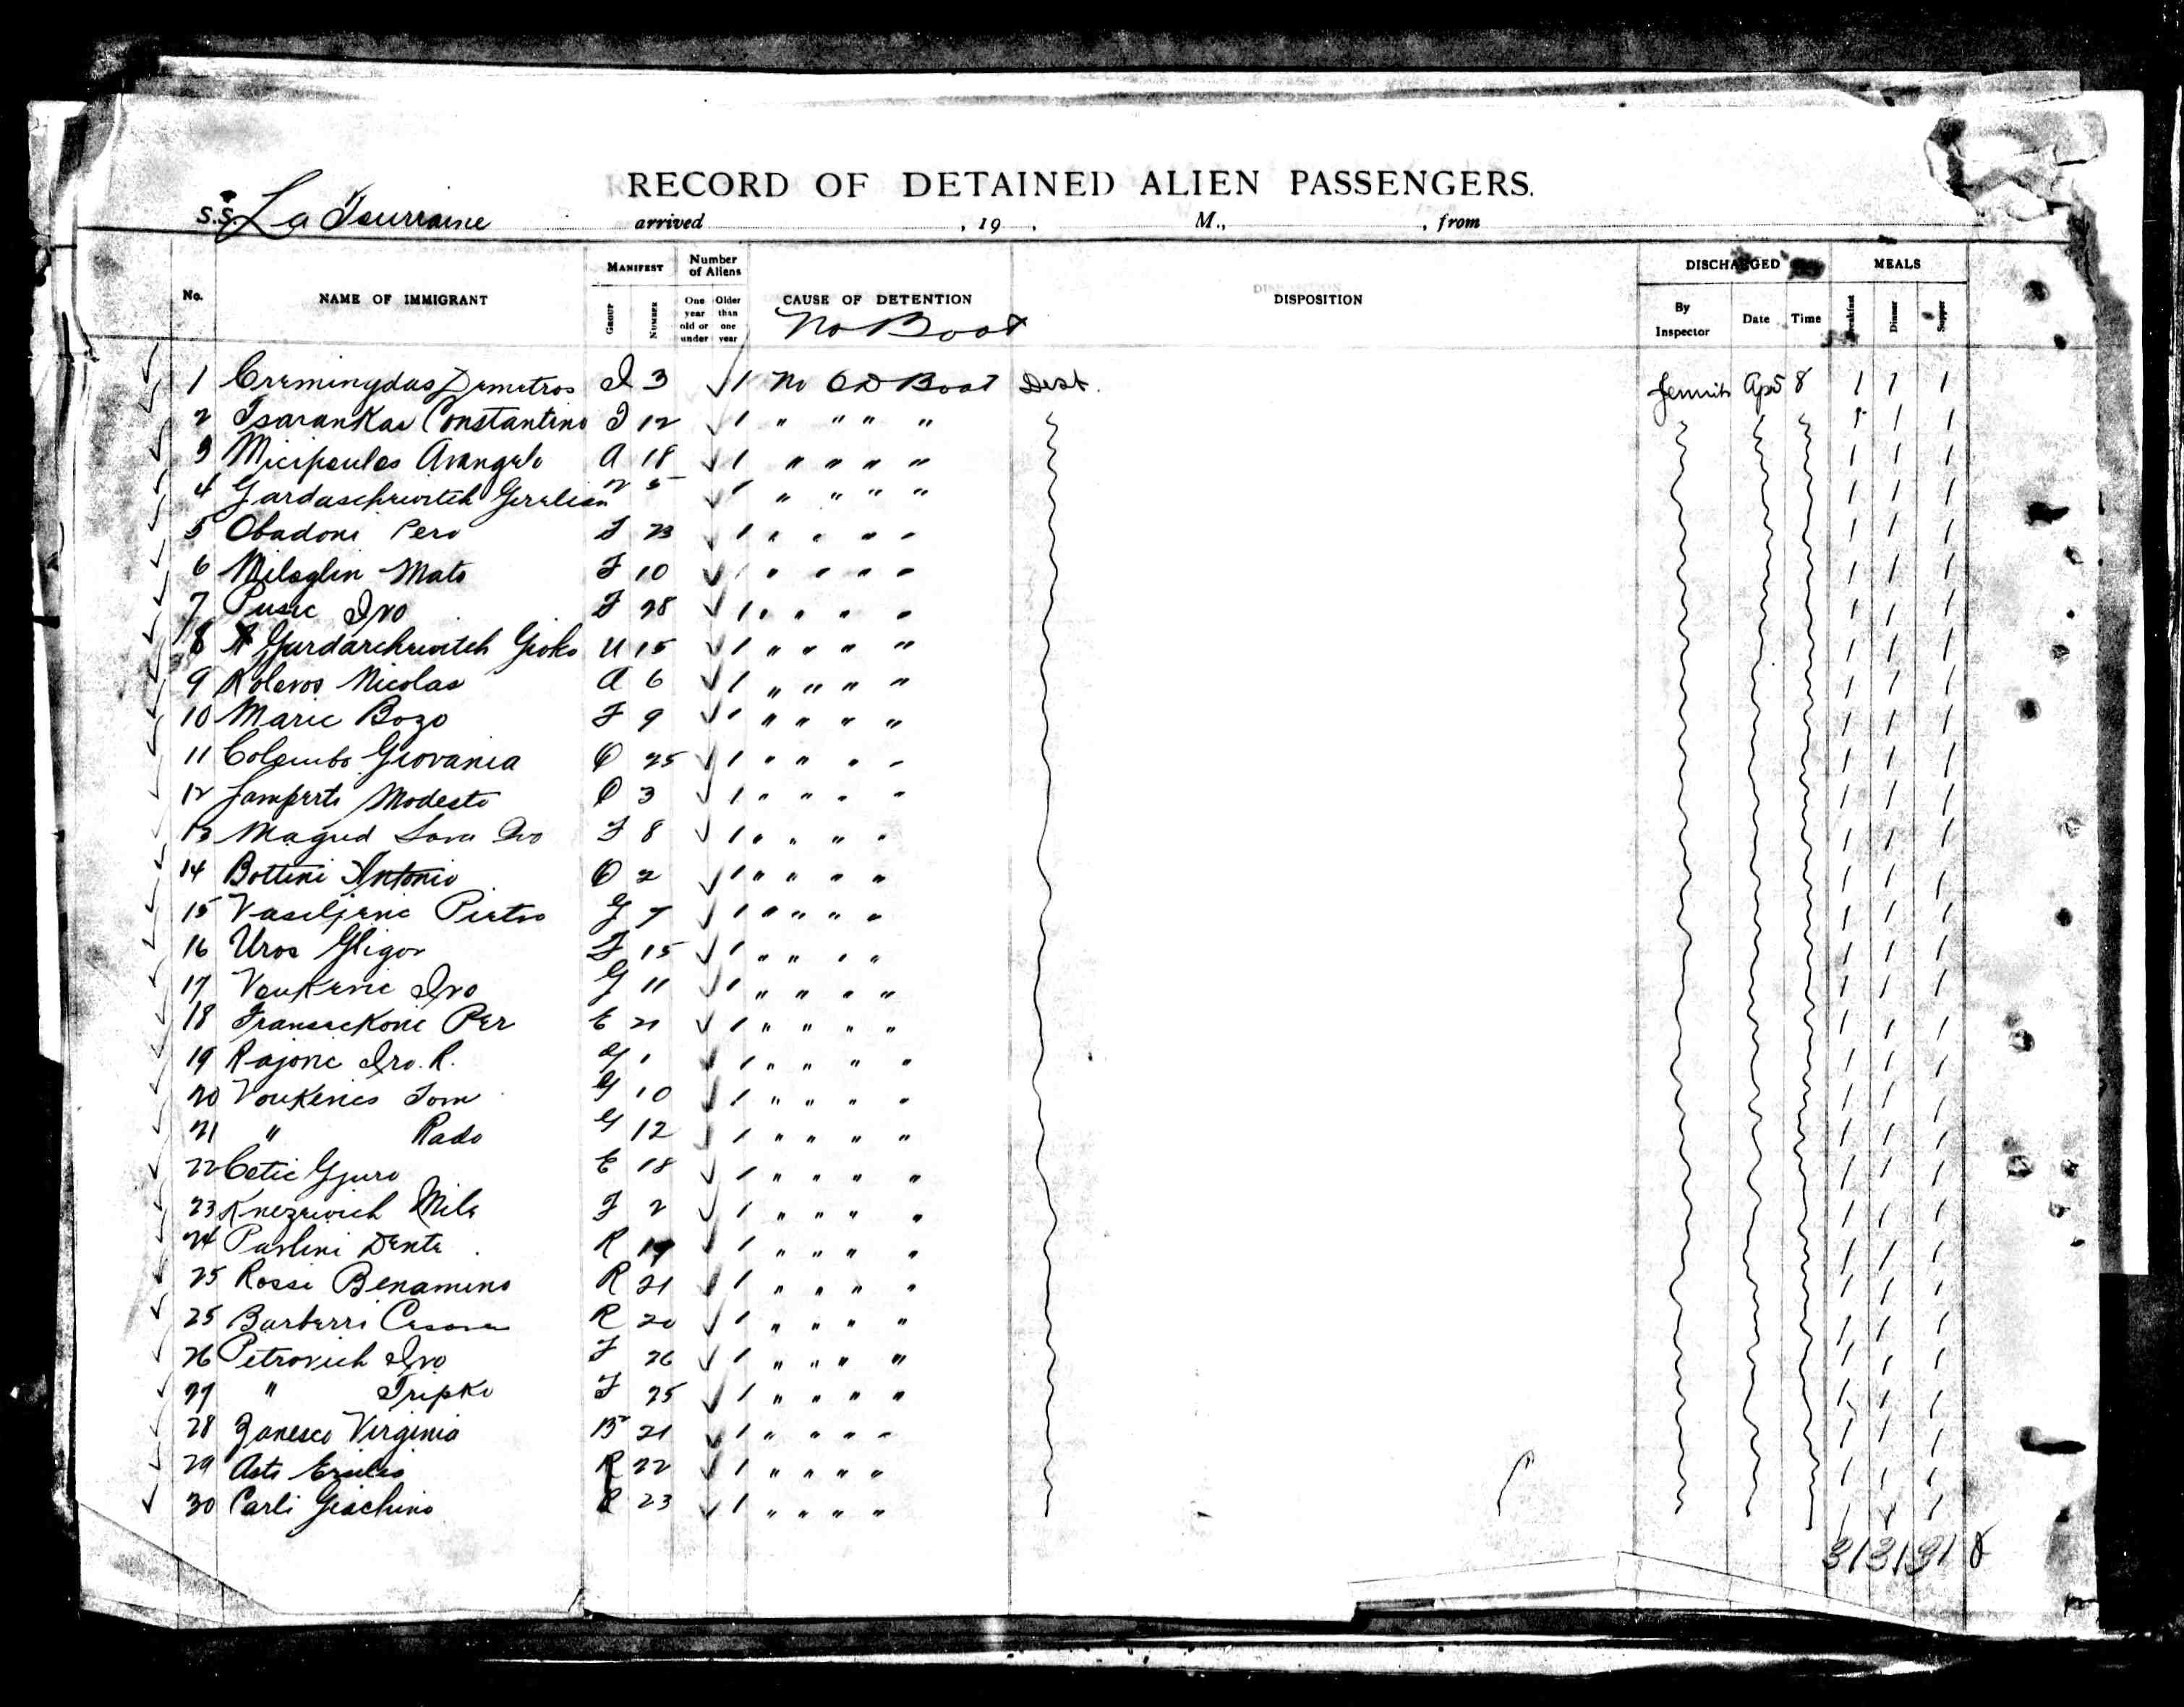 RECORD OF DETAINED ALIEN PASSENGERS.
S.S. La Tourraine arrived , 19 . M., , from
No. NAME OF IMMIGRANT MANIFEST GROUP NUMBER Number of Aliens One year old or under Older than one year CAUSE OF DETENTION DISPOSITION DISCHARGED By Inspector Date Time MEALS Breakfast Dinner Supper
No Boat
1 Creminydas Demetros I 3 1 No OD Boat Dest. Ap 5 8 1 1 1
2 Tsarankas Constantino I 12 1 " " " " 1 1 1
3 Micipoulos Avangelo A 18 1 " " " " 1 1 1
4 Gardaschewitch 5 1 " " " " 1 1 1
5 Obadoni Pero F 23 1 " " " " 1 1 1
6 Miloglin Mato F 10 1 " " " " 1 1 1
7 Pusic Ivo F 28 1 " " " " 1 1 1
8 Gardarchewitch Gioko U 15 1 " " " " 1 1 1
9 Kolovos Nicolas A 6 1 " " " " 1 1 1
10 Maric Bozo F 9 1 " " " " 1 1 1
11 Colombo Giovania O 25 1 " " " " 1 1 1
12 Lamperti Modesto O 3 1 " " " " 1 1 1
13 Magud Ivo F 8 1 " " " " 1 1 1
14 Bottini Antonio O 2 1 " " " " 1 1 1
15 Vasiljevic Pietro G 7 1 " " " " 1 1 1
16 Uros Gligor F 15 1 " " " " 1 1 1
17 Voukevic Ivo G 11 1 " " " " 1 1 1
18 Per E 21 1 " " " " 1 1 1
19 Rajovic Ivo. R. G 1 1 " " " " 1 1 1
20 Voukevics Tom G 10 1 " " " " 1 1 1
21 " Rado G 12 1 " " " " 1 1 1
22 Cetic Gjuro E 18 1 " " " " 1 1 1
23 Knezewich Mile F 2 1 " " " " 1 1 1
24 Paolini Dente R 19 1 " " " " 1 1 1
25 Rossi Benamino R 21 1 " " " " 1 1 1
25 Barberri R 20 1 " " " " 1 1 1
26 Petrovich Ivo F 26 1 " " " " 1 1 1
27 " Tripko F 25 1 " " " " 1 1 1
28 Zanesco Virginio 21 1 " " " " 1 1 1
29 Asti Ersilio R 22 1 " " " " 1 1 1
30 Carli Giachino R 23 1 " " " " 1 1 1
31 31 31